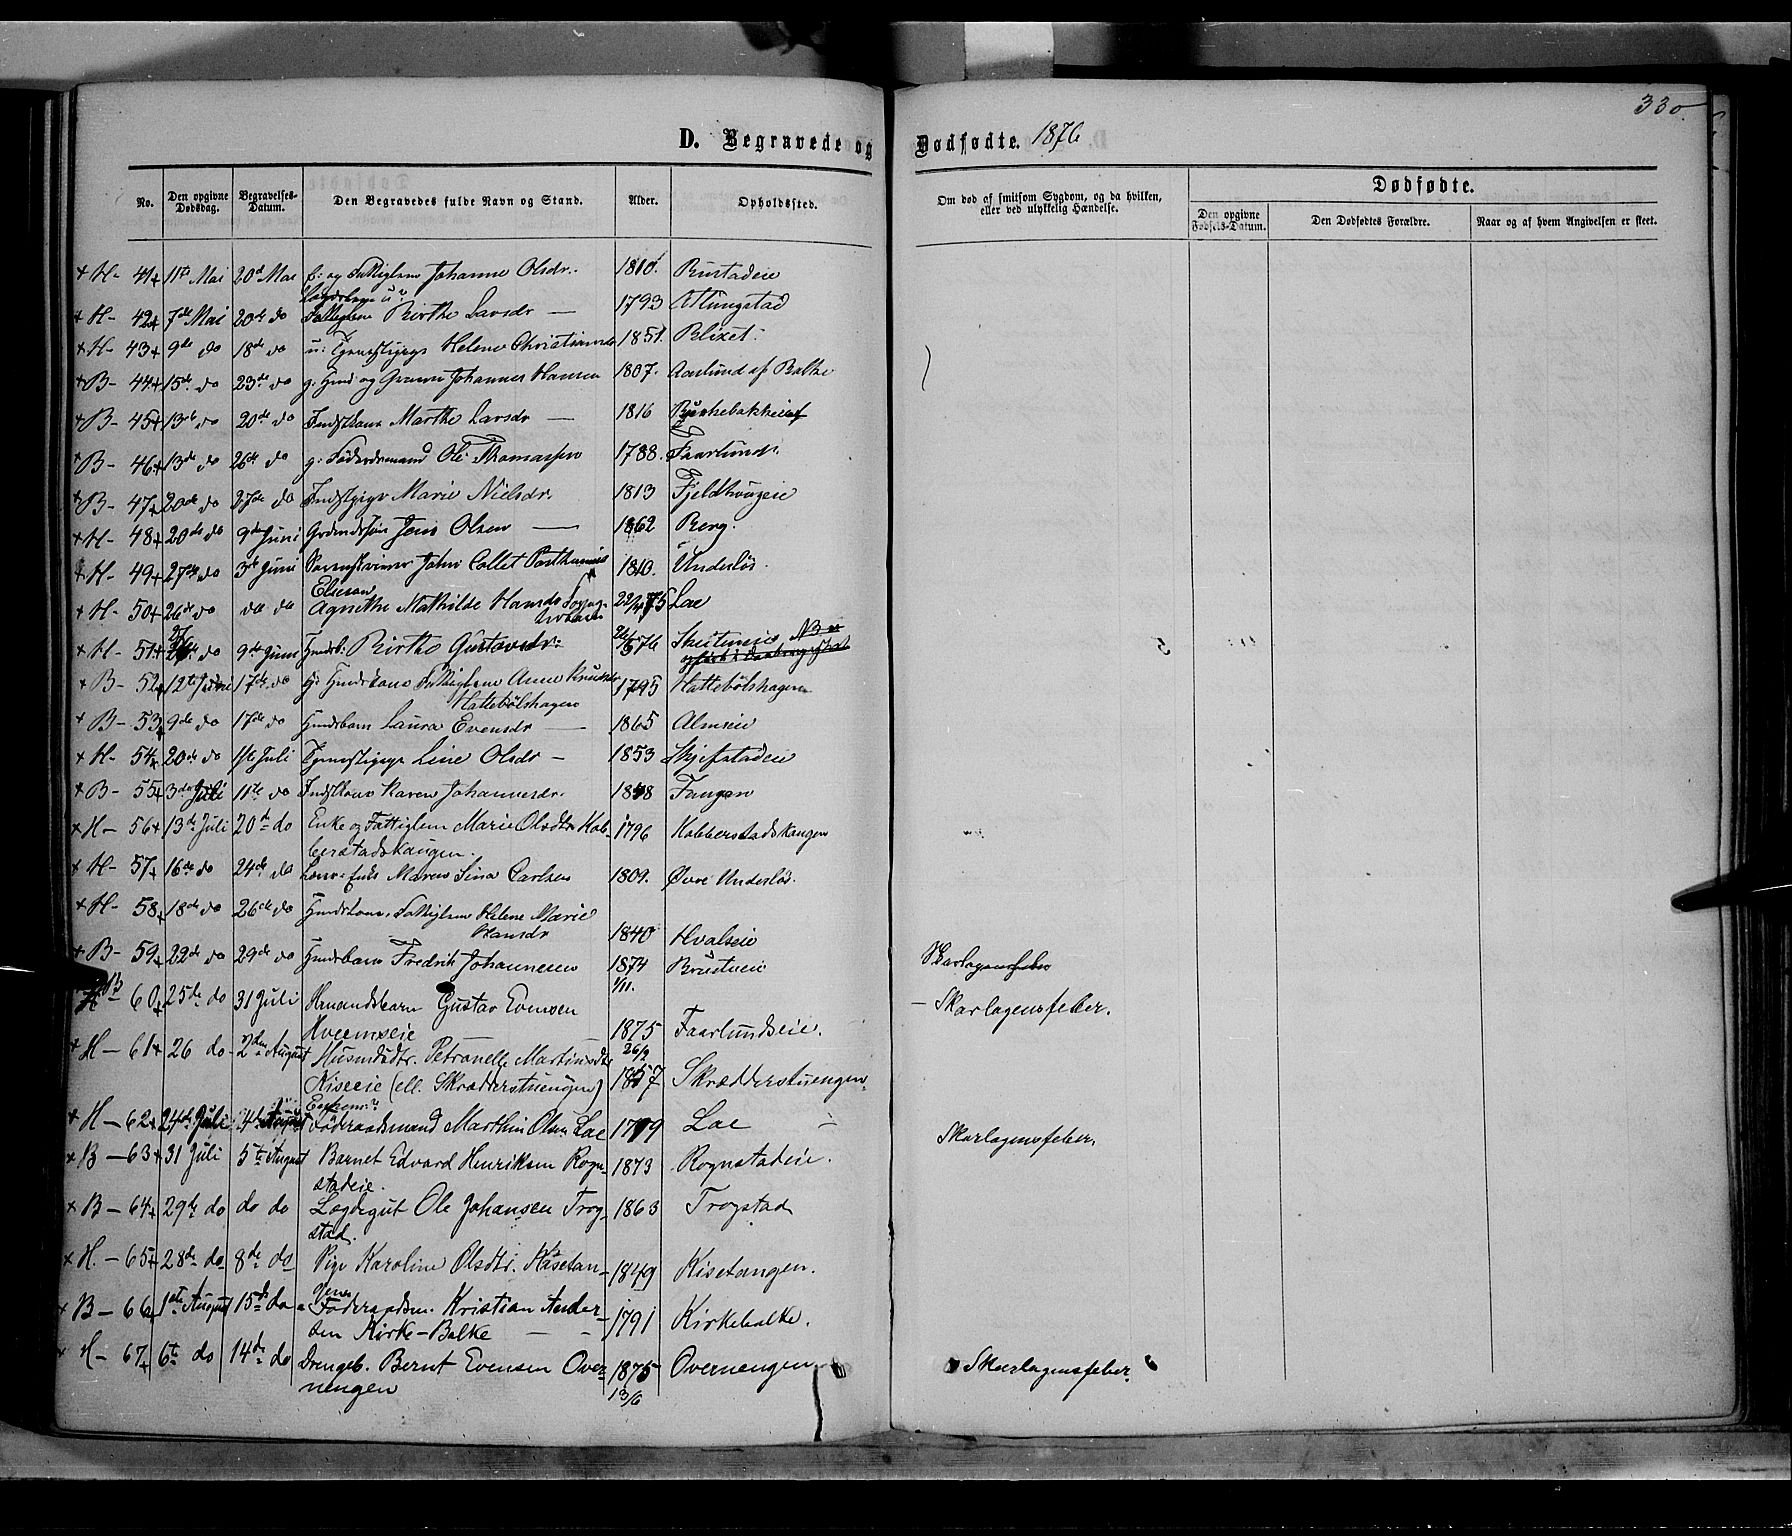 330.
D. Begravede og Dødfødte. 1876
No. Den opgivne Dødsdag. Begravelses-Datum. Den Begravedes fulde Navn og Stand. Alder. Opholdssted. Om død af smitsom Sygdom, og da hvilken, eller ved ulykkelig Hændelse. Dødfødte.
Den opgivne Fødsels-Datum. Den Dødfødtes Forældre. Naar og af hvem Angivelsen er skeet.
+ H- 41+ 11te Mai 20de Mai E: og Fattiglem Johanne Olsdr. 1810. Rustadeie
+ H- 42+ 7de Mai 20de do Fattiglem Birthe Larsdr — 1793 Atlungstad
+ H- 43+ 9de do 18de do u: Tjenestpige Helene Christiansdr 1851. Blixet.
+ B- 44+ 15de do 23de do g: Huusm og Johannes Hansen 1807. Aarlund af Balke
+ B- 45+ 13de do 20de do Indstkone Marthe Larsdr — 1816
+ B- 46+ 13de do 26de do g: Føderdsmand Ole Thomassen 1788. Faarlund.
+ B- 47+ 20de do 27de do Indstpige Marie Nielsdr. 1813 Fjeldhougeie
+ H- 48+ 20de do 9de Juni Jens Olsen — 1862 Berg.
+ H- 49+ 27de do 3de Juni John Collet Posthumus 1810. Underløs.
Elieson
+ H- 50+ 26de do do do Agnethe Mathilde Hansdr 22/4 75 Lae
+ H- 51+ do 9de Juni Husmb: Birthe Gustavsdr: 26/5 76 NB
+ B- 52+ 12te Juni 17de do Huuskone Fattiglem Anne Knudsdr 1795 Hattebølshagen
Hattebølshagen
+ B- 53+ 9de do 17de do Husmbarn Laura Evensdr — 1865 Almseie
+ H- 54+ 20de do 1ste Juli Tjenestpige Line Olsdr — 1853 Skjefstadeie
+ B- 55+ 3de Juli 11te do Indstkone Karen Johannesdr. 1848 Fangen
+ H- 56+ 13de Juli 20de do Enke og Fattiglem Marie Olsdtr Kob- 1796 Kobberstadskaugen
berstadskaugen.
+ H- 57+ 16de do 24de do Maren Sina Carlsen 1809. Øvre Underløs.
+ H- 58+ 18de do 26de do Huuskone, Fattiglem Helene Marie
Hansdr 1840 Hvalseie
+ B- 59+ 22de do 29de do Husmbarn Fredrik Johannesen 1874 Brustueie Skarlagensfeber
1/11.
B- 60+ 25de do 31 Juli Husmandsbarn Gustav Evensen — Skarlagensfeber.
Hveemseie 1875 Faarlundseie.
26/2
+ H- 61+ 26 do 2den August Husmdsdtr. Petronelle Martinsdtr
Kiseeie (ell. Skrædderstuengen) 1857 Skrædderstuengen
+ H- 62+ 24de Juli 4de August Føderaadsmand Marthin Olsen Lae 1779 Lae
+ B- 63+ 31 Juli 5te August Barnet Edvard Henriksen Rogn- 1873 Rognstadeie. Skarlagensfeber.
stadeie.
+ B- 64+ 29de do do do Lægdegut Ole Johansen Trog- 1863 Trogstad
stad.
+ H- 65+ 28de do 8de do Pige Karoline Olsdtr. Kisetan- 1849 Kisetangen.
gen
+ B- 66+ 1ste August 15de do Føderaadsm. Kristian Ander-
sen Kirke-Balke — 1791 Kirkebalke.
+ H- 67+ 6te do 14de do Drengeb. Bernt Evensen Over- 1875 Overnengen Skarlagensfeber
nengen 13/6